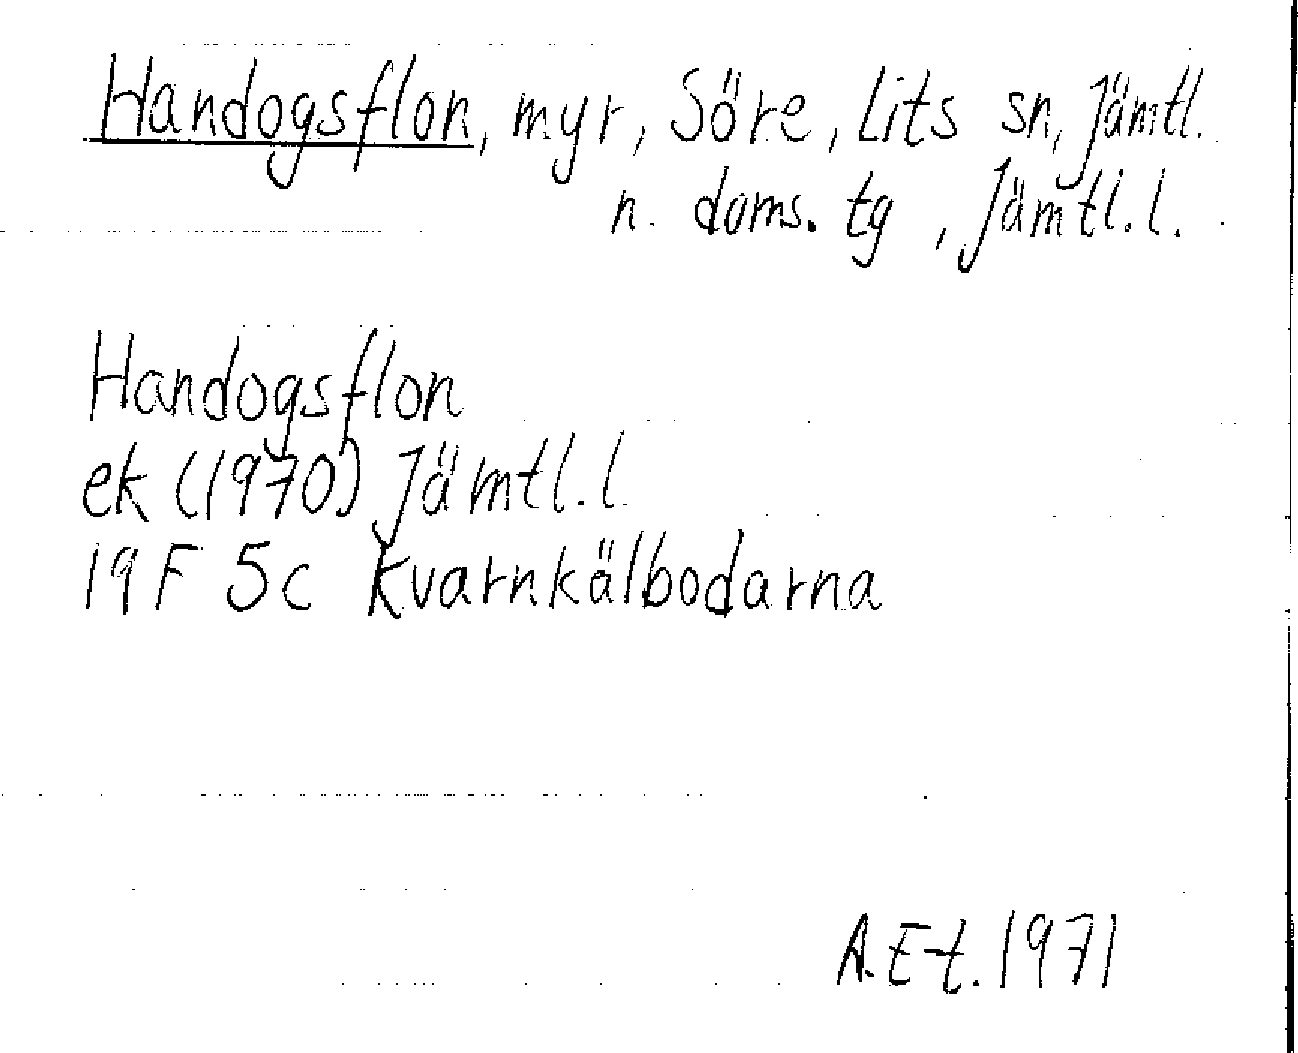 Handogsflon, myr, Söre, Lits sn, Jämtl.
n. doms. tg, Jämtl. l.
Handogsflon
ek (1970) Jämtl. l.
19 F 5c Kvarnkälbodarna
A. E-t. 1971